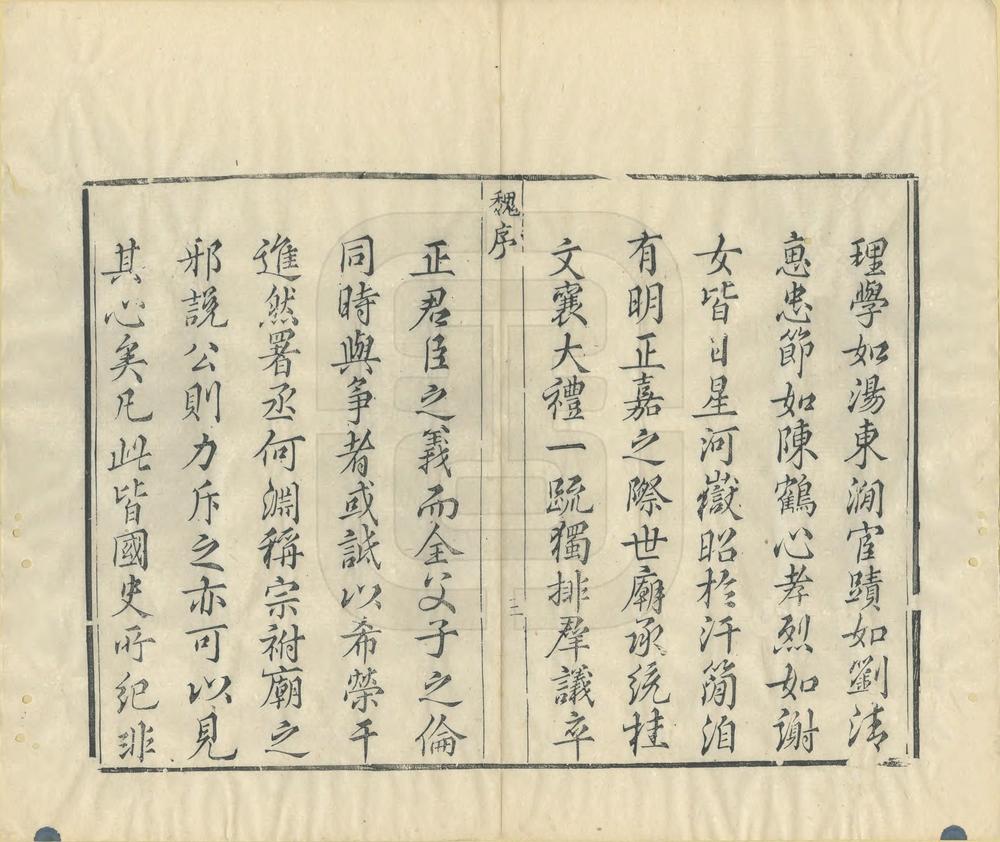 理學如湯東澗宦蹟如劉清
惠忠節如陳鶴心孝烈如謝
女皆日星河嶽昭於汗簡洎
有明正嘉之際世廟承統桂
文襄大禮一疏獨排羣議卒
魏序
三
正君臣之義而全父子之倫
同時與爭者或詆以希榮干
進然署丞何淵稱宗祔廟之
邪說公則力斥之亦可以見
其心矣凡此皆國史所紀非